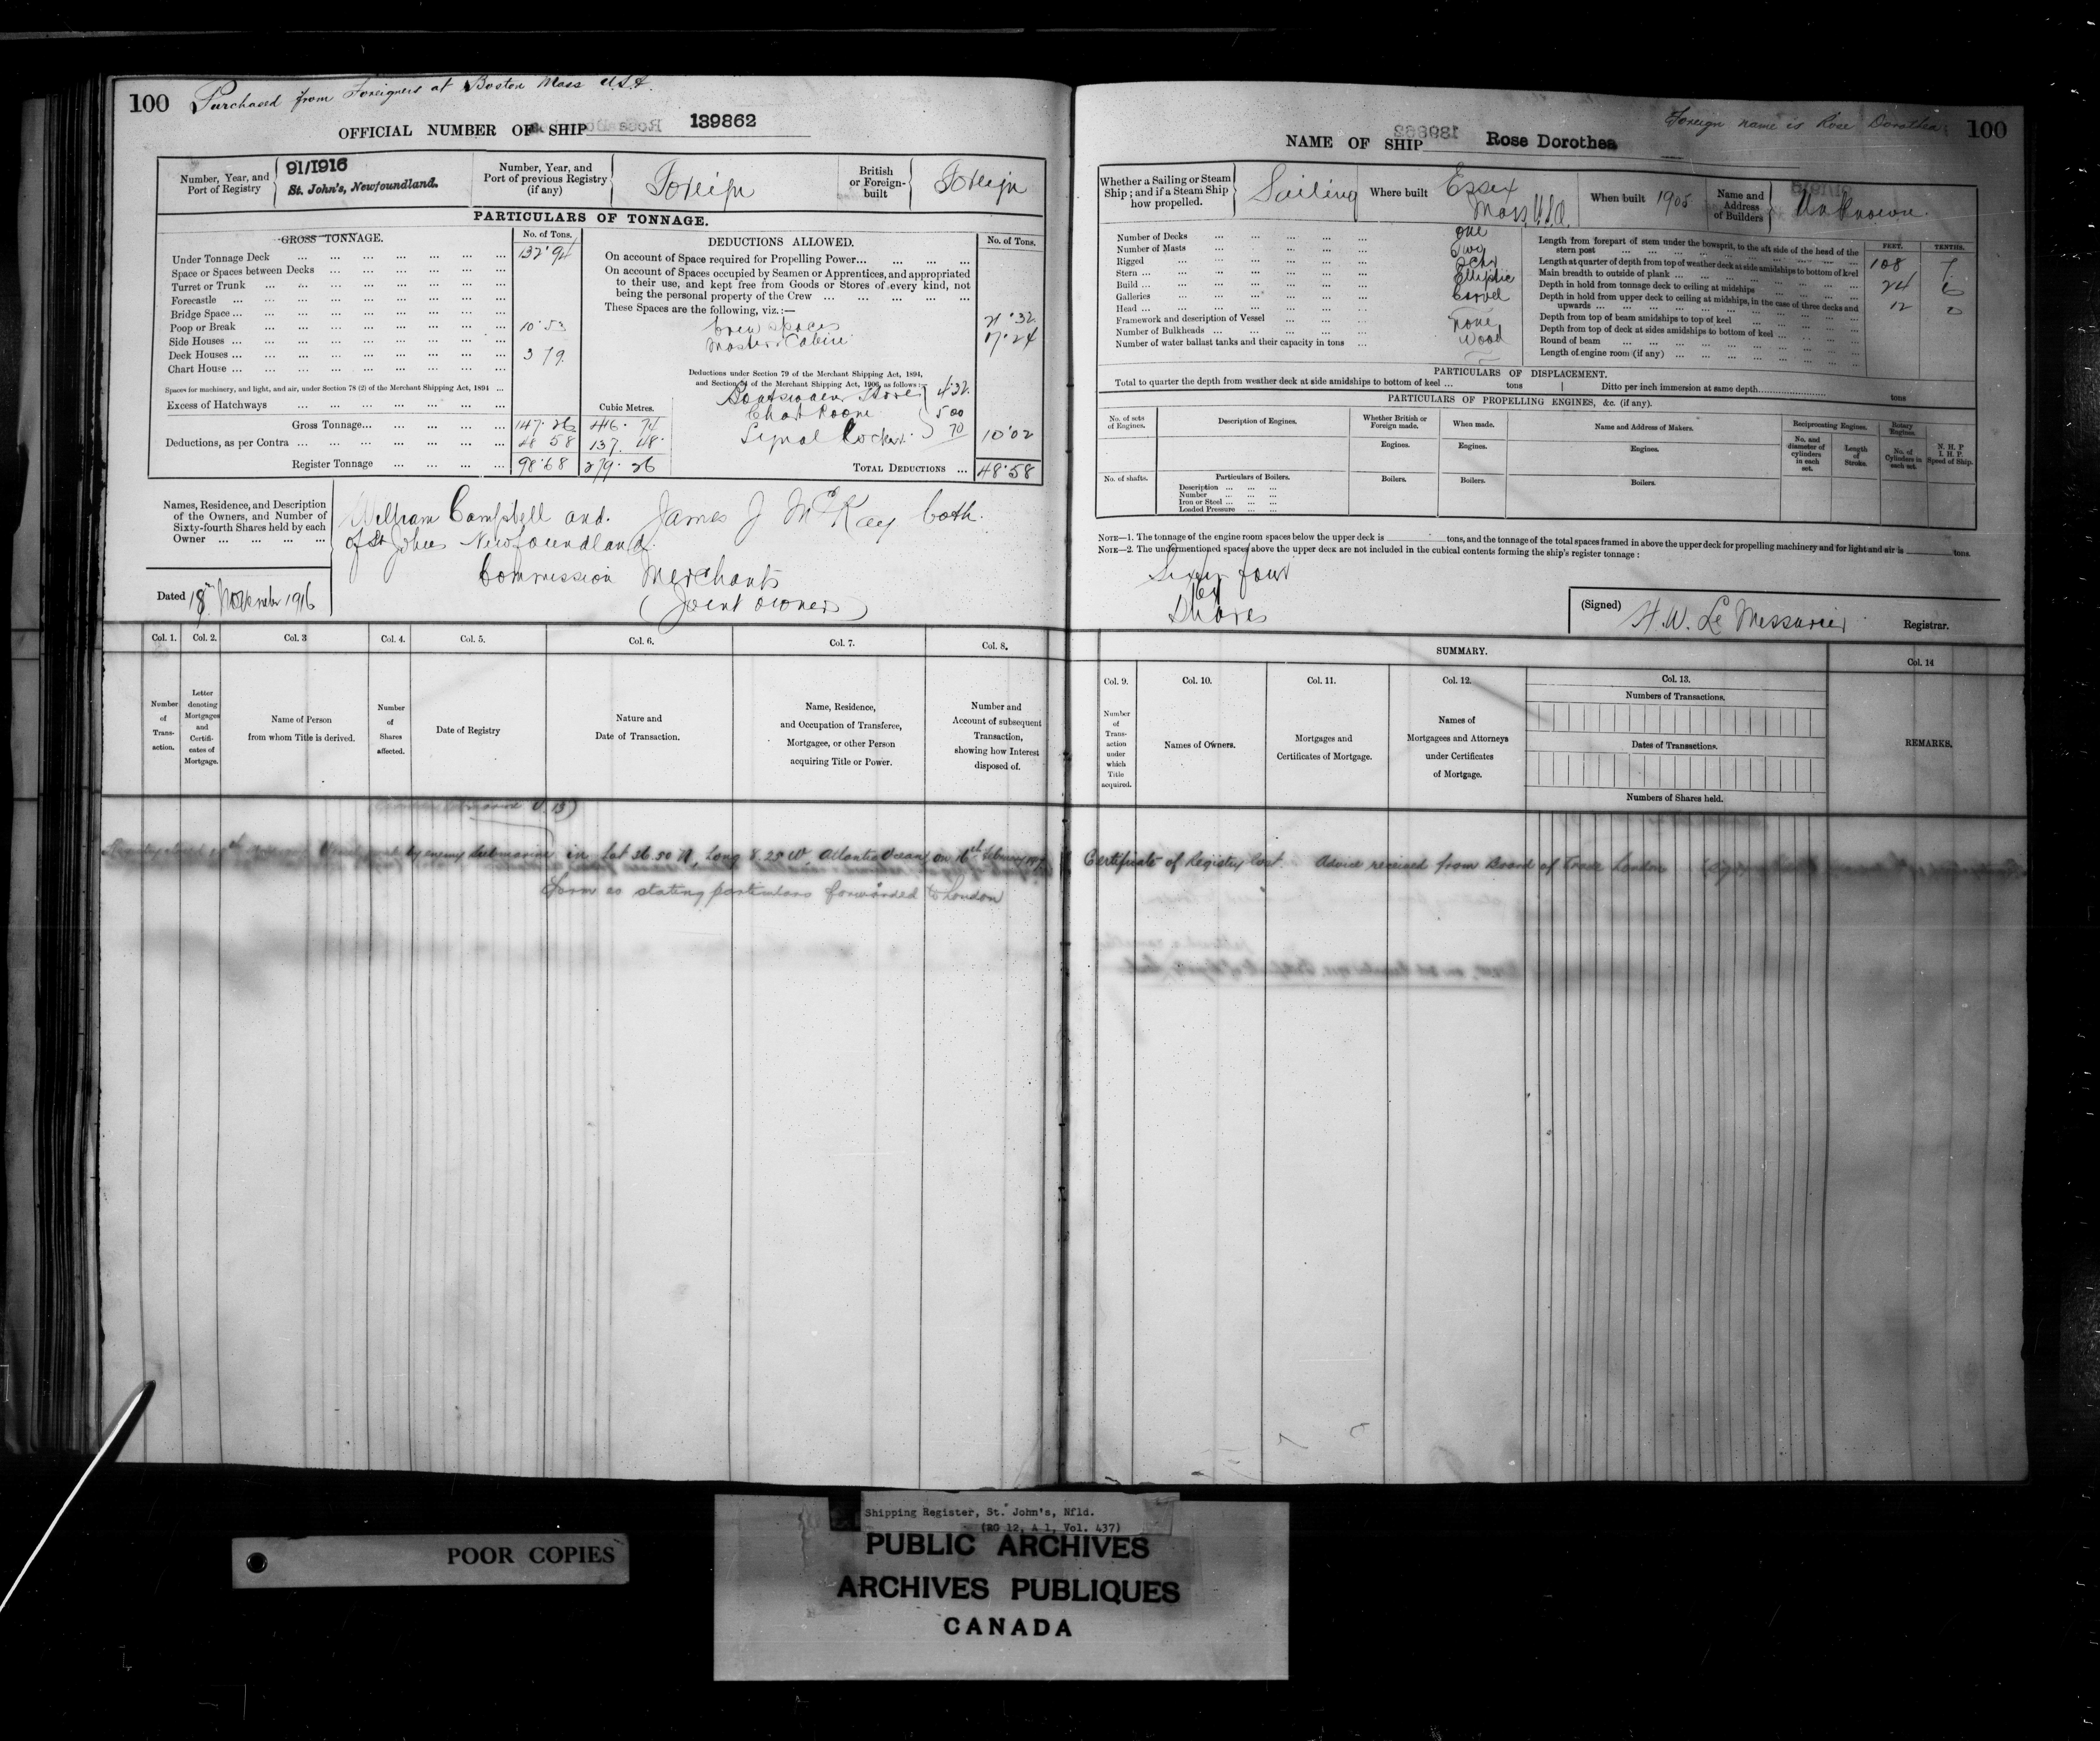 100 Purchased from Foreigners at Boston Mass U.S.A.
OFFICIAL NUMBER OF SHIP 139862
Number, Year, and Port of Registry
91/1916
St. John's, Newfoundland.
Number, Year, and Port of previous Registry (if any)
Foreign
British or Foreign-built
Foreign
PARTICULARS OF TONNAGE.
GROSS TONNAGE.
No. of Tons.
Under Tonnage Deck 132.94
Space or Spaces between Decks
Turret or Trunk
Forecastle
Bridge Space
Poop or Break 10.53
Side Houses
Deck Houses 3 79
Chart House
Spaces for machinery, and light, and air, under Section 78 (2) of the Merchant Shipping Act, 1894
Excess of Hatchways
Cubic Metres.
Gross Tonnage 147.26 416.74
Deductions, as per Contra 48 58 137.48
Register Tonnage 98.68 279.26
DEDUCTIONS ALLOWED.
No. of Tons.
On account of Space required for Propelling Power
On account of Spaces occupied by Seamen or Apprentices, and appropriated to their use, and kept free from Goods or Stores of every kind, not being the personal property of the Crew
These Spaces are the following, viz.:—
Crew spaces 21.32
Master's Cabin 17.24
Deductions under Section 79 of the Merchant Shipping Act, 1894,
and Section 54 of the Merchant Shipping Act, 1906, as follows:—
Boatswain Stores 4.32
Chart Room 5 00
Signal Locker 70 10.02
TOTAL DEDUCTIONS 48.58
Names, Residence, and Description of the Owners, and Number of Sixty-fourth Shares held by each Owner
William Campbell and James J McKay both
of St Johns Newfoundland
Commission Merchants
(Joint owners)
Dated 18th November 1916
Col. 1. Col. 2. Col. 3 Col. 4. Col. 5. Col. 6. Col. 7. Col. 8.
Number of Trans-action.
Letter denoting Mortgages and Certifi-cates of Mortgage.
Name of Person from whom Title is derived.
Number of Shares affected.
Date of Registry
Nature and Date of Transaction.
Name, Residence, and Occupation of Transferee, Mortgagee, or other Person acquiring Title or Power.
Number and Account of subsequent Transaction, showing how Interest disposed of.
by enemy submarine in Lat 36.50 N, Long 8.25 W, Atlantic Ocean, on 16th February
stating particulars forwarded to London
Foreign name is Rose Dorothea 100
NAME OF SHIP Rose Dorothea
Whether a Sailing or Steam Ship; and if a Steam Ship how propelled.
Sailing
Where built
Essex
Mass U.S.A.
When built 1905
Name and Address of Builders
Unknown
Number of Decks One
Number of Masts Two
Rigged Schr
Stern Elliptic
Build Carvel
Galleries
Head None
Framework and description of Vessel Wood
Number of Bulkheads
Number of water ballast tanks and their capacity in tons
FEET. TENTHS.
Length from forepart of stem under the bowsprit, to the aft side of the head of the stern post 108 7
Length at quarter of depth from top of weather deck at side amidships to bottom of keel
Main breadth to outside of plank 24 6
Depth in hold from tonnage deck to ceiling at midships 12 0
Depth in hold from upper deck to ceiling at midships, in the case of three decks and upwards
Depth from top of beam amidships to top of keel
Depth from top of deck at sides amidships to bottom of keel
Round of beam
Length of engine room (if any)
PARTICULARS OF DISPLACEMENT.
Total to quarter the depth from weather deck at side amidships to bottom of keel tons Ditto per inch immersion at same depth tons
PARTICULARS OF PROPELLING ENGINES, &c. (if any).
No. of sets of Engines.
Description of Engines.
Whether British or Foreign made.
When made.
Name and Address of Makers.
Reciprocating Engines.
Rotary Engines.
N. H. P
I. H. P.
Speed of Ship.
Engines. Engines. Engines.
No. and diameter of cylinders in each set.
Length of Stroke.
No. of Cylinders in each set.
No. of shafts.
Particulars of Boilers.
Description
Number
Iron or Steel
Loaded Pressure
Boilers. Boilers. Boilers.
NOTE—1. The tonnage of the engine room spaces below the upper deck is tons, and the tonnage of the total spaces framed in above the upper deck for propelling machinery and for light and air is tons.
NOTE—2. The undermentioned spaces above the upper deck are not included in the cubical contents forming the ship's register tonnage:
Sixty four
64
Shares
(Signed) H.W. Le Messurier Registrar.
SUMMARY.
Col. 9. Col. 10. Col. 11. Col. 12. Col. 13. Col. 14
Number of Trans-action under which Title acquired.
Names of Owners.
Mortgages and Certificates of Mortgage.
Names of Mortgagees and Attorneys under Certificates of Mortgage.
Numbers of Transactions.
Dates of Transactions.
Numbers of Shares held.
REMARKS.
Certificate of Registry lost. Advice received from Board of Trade London
POOR COPIES
Shipping Register, St. John's, Nfld.
(RG 12, A 1, Vol. 437)
PUBLIC ARCHIVES
ARCHIVES PUBLIQUES
CANADA